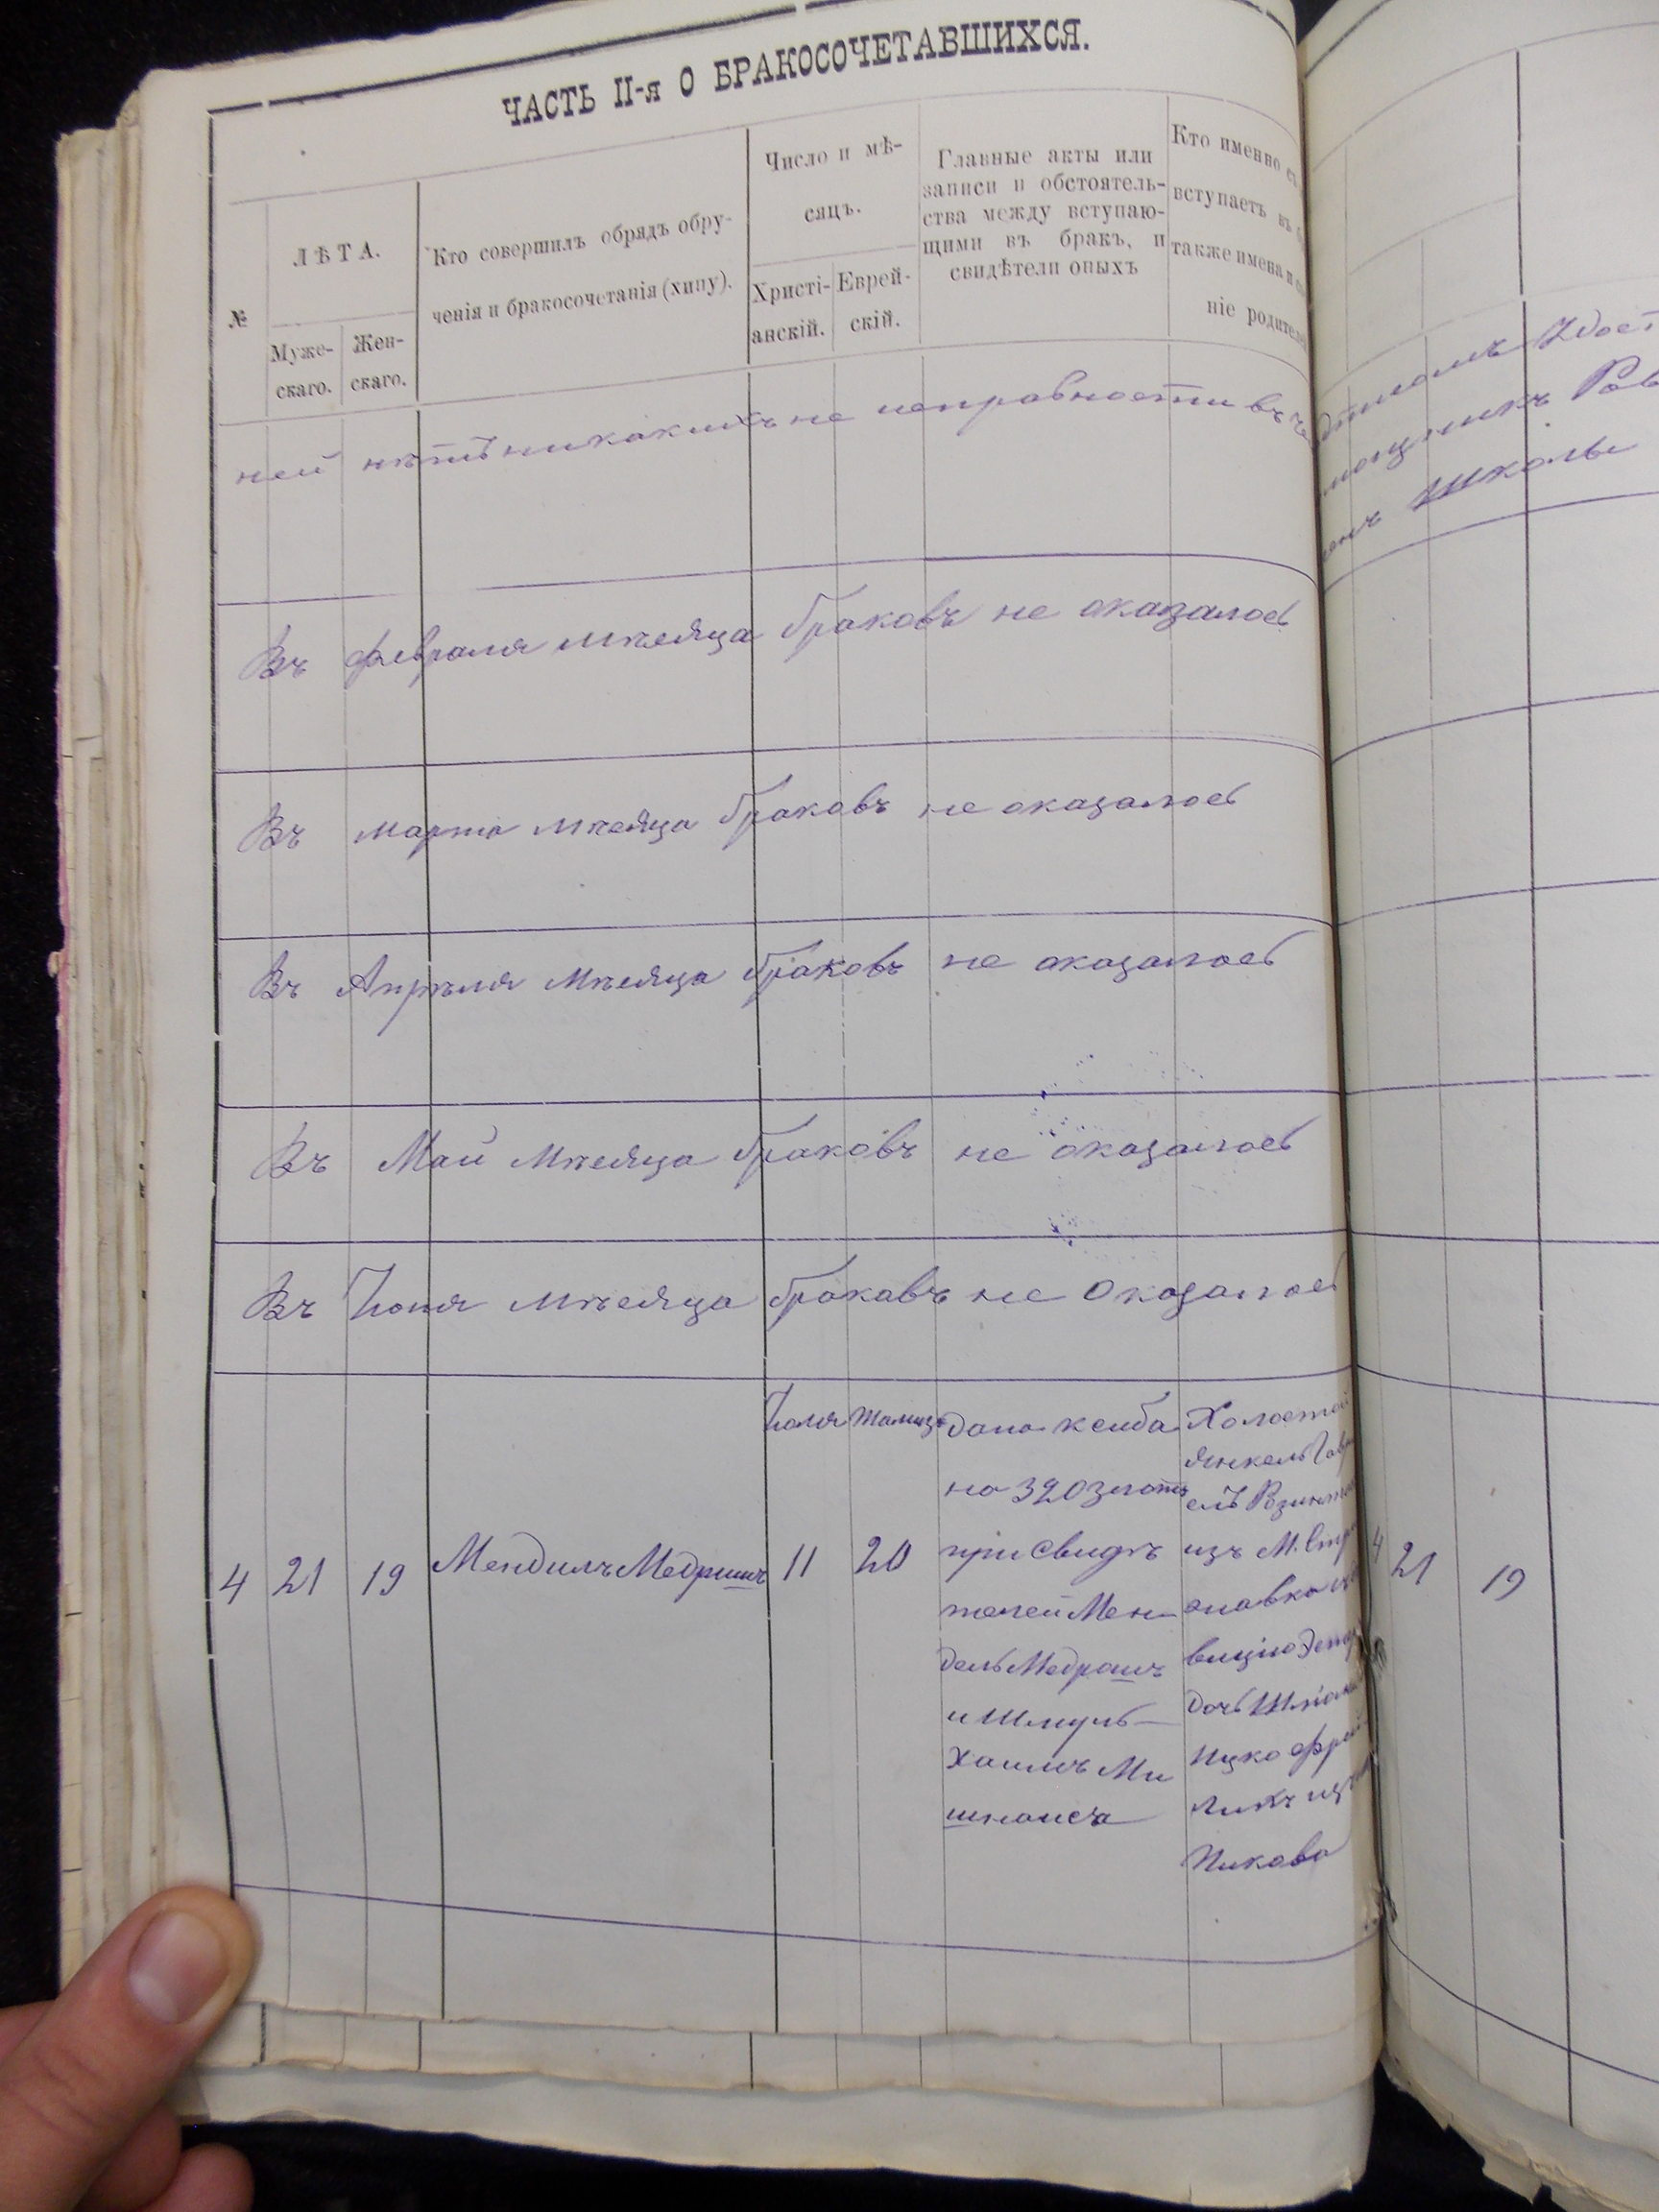 ЧАСТЬ II-я О БРАКОСОЧЕТАВШИХСЯ.
№
ЛѢТА.
Муже-
скаго.
Жен-
скаго.
Кто совершилъ обрядъ обру-
ченія и бракосочетанія (хипу).
Число и мѣ-
сяцъ.
Христі-
анскій.
Еврей-
скій.
Главные акты или
записи и обстоятель-
ства между вступаю-
щими въ бракъ, и
свидѣтели оныхъ
Кто именно съ
вступаетъ въ б
также имена и со
ніе родител
ней нѣтъ никакихъ не исправности въ
Въ февраля мѣсяца браковъ не оказалось
Въ марта мѣсяца браковъ не оказалось
Въ Апрѣля мѣсяца браковъ не оказалось
Въ Май мѣсяца браковъ не оказалось
Въ Іюня мѣсяца браковъ не оказалось
4
21
19
Мендилъ Медришъ
Іюля
11
Тамиза
20
дана ксиба
на 320 злотъ
при свидѣ
телей Мен
дель Медришъ
и Шмуль
Хаимъ Ми
Холостой
Янкель
изъ М.
дочь
Ицко
Пикова
Школы
4
21
19